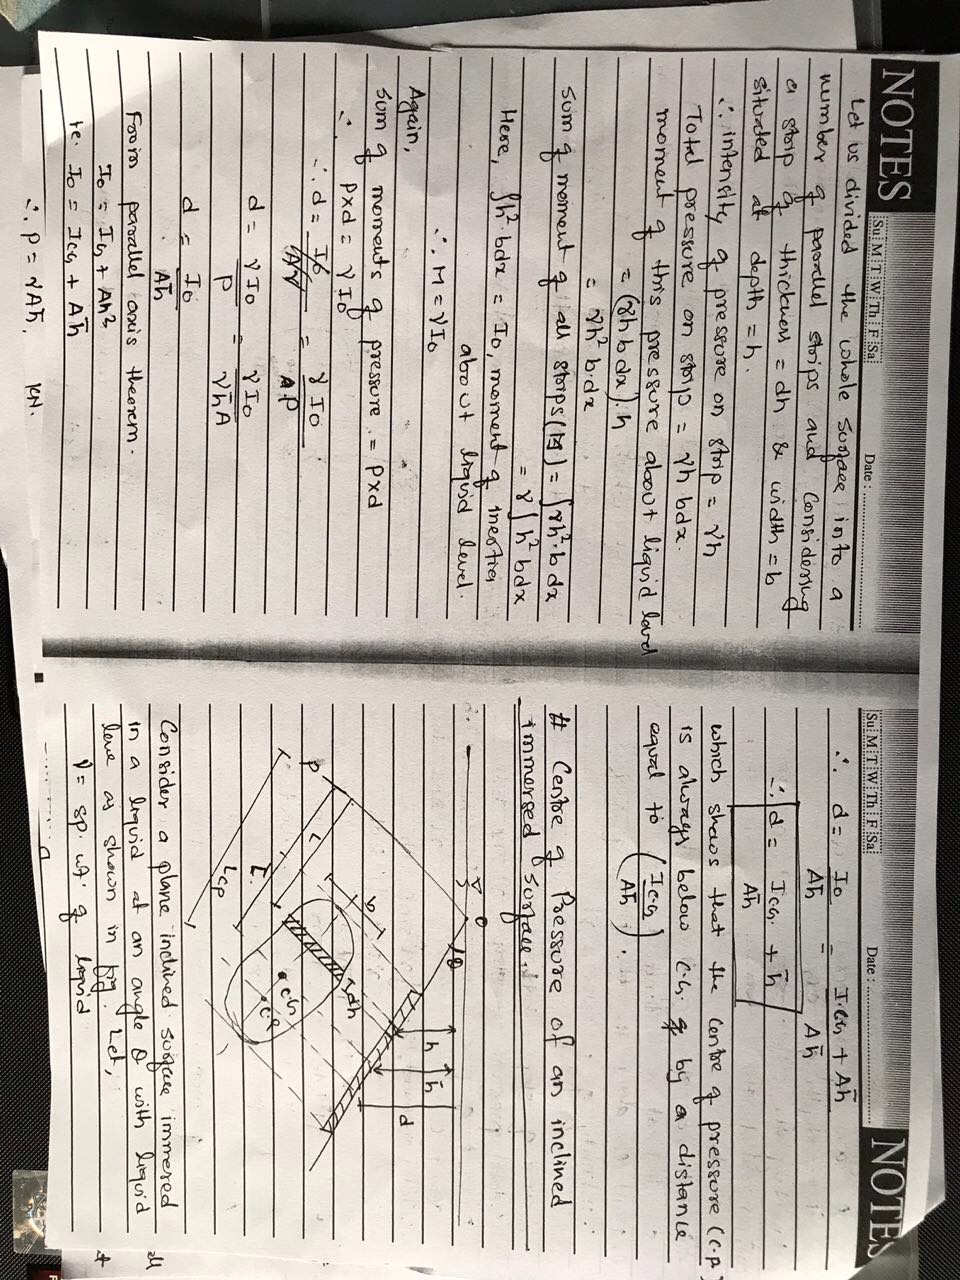 NOTES
Su M T W Th F Sa
Date :
Let us divided the whole surface in to a
number of parallel strips and considering
a strip of thickness = dh & width = b
situated at depth = h.
∴ intensity of pressure on strip = γh
Total pressure on strip = γh bdx.
moment of this pressure about liquid level
= (γh b dx).h
= γh² b.dx
Sum of moment of all strips (M) = ∫γh².b dx
= γ∫h² bdx
Here, ∫h².bdx = I₀, moment of inertia
about liquid level.
∴ M = γI₀
Again,
Sum of moments of pressure = p×d
∴ p×d = γI₀
∴ d = γI₀ / AP
d = γI₀ / P = γI₀ / γh̄A
d = I₀ / Ah̄
From parallel axis theorem.
I₀ = IG + Ah²
ie. I₀ = IC.G + Ah̄
∴ P = γAh̄, KN.
Su M T W Th F Sa
Date :
NOTES
∴ d = I₀ / Ah̄ = IC.G + Ah̄ / Ah̄
∴ d = IC.G. / Ah̄ + h̄
which shows that the centre of pressure (C.P)
is always below C.G. of by a distance
equal to (IC.G / Ah̄).
# Centre of Pressure of an inclined
immersed surface.
O
θ
h
h̄
d
P
L
L̄
Lcp
b
dh
C.G
C.P
Consider a plane inclined surface immersed
in a liquid at an angle θ with liquid
leve as shown in fig. Let,
γ = sp. wt. of liquid